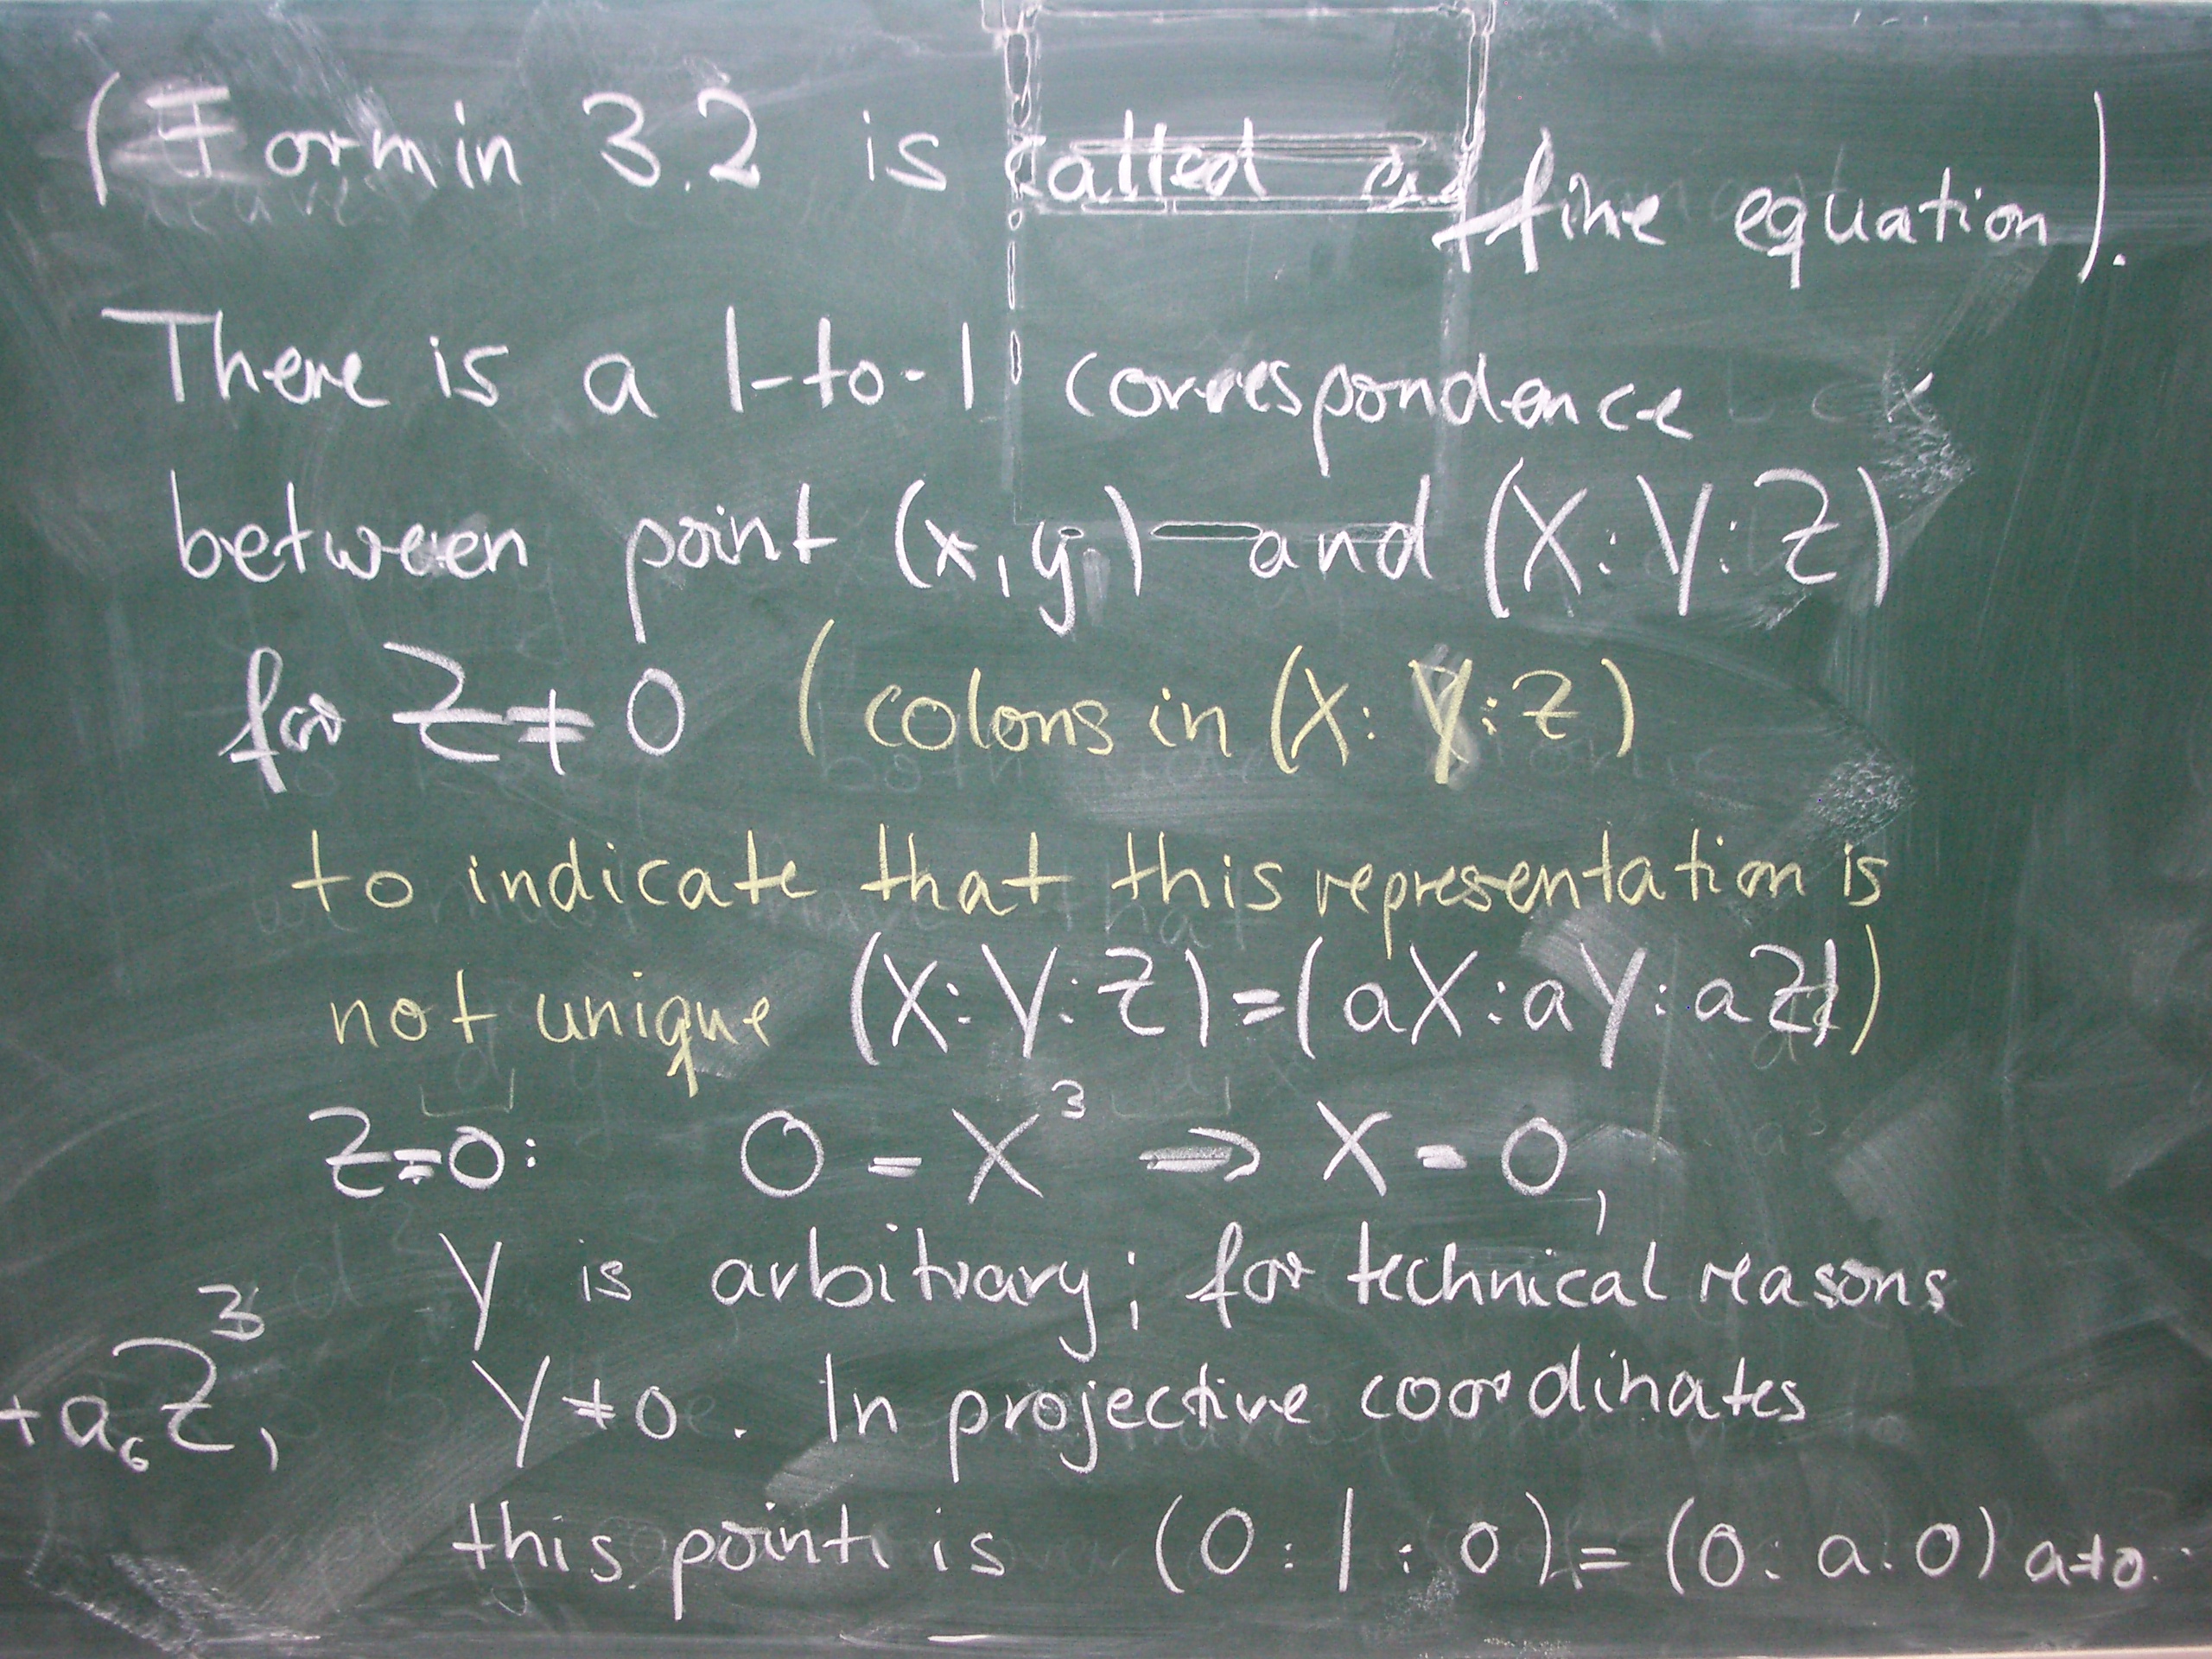 (Form in 3.2 is called affine equation).
There is a 1-to-1 correspondence
between point (x,y) and (X:Y:Z)
for Z≠0 (colons in (X:Y:Z)
to indicate that this representation is
not unique (X:Y:Z)=(aX:aY:aZ))
Z=0: 0=X³ ⇒ X=0,
Y is arbitrary; for technical reasons
+a₆Z³, Y≠0. In projective coordinates
this point is (0:1:0)=(0:a:0) a≠0.